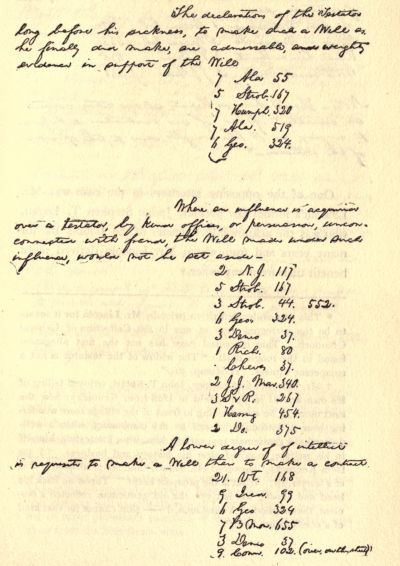 The declarations of the Testator
long before his sickness, to make such a Will as
he finally did make, are admissable, and weighty
evidence in support of the Will
7 Ala 55
5 Strob. 167
7 Humph. 320
7 Ala. 519
6 Geo. 324.
Where an influence is acquired
over a testator, by kind offices, or persuasion, uncon-
connected with fraud, the Will made under such
influence, would not be set aside—
2 N.J. 117
5 Strob. 167
3 Strob. 44. 552.
6 Geo. 324.
3 Denio 37.
1 Rich. 80
Cheves 37.
2 J.J. Mar. 340.
3 S & R. 267
1 454.
2 Do. 375
A lower degree of of intellect
is requisite to make a Will than to make a contract.
21. Vt. 168
9 99
6 Geo 324
7 B Mon. 655
3 Denio 37.
9. Conn. 102. (over,